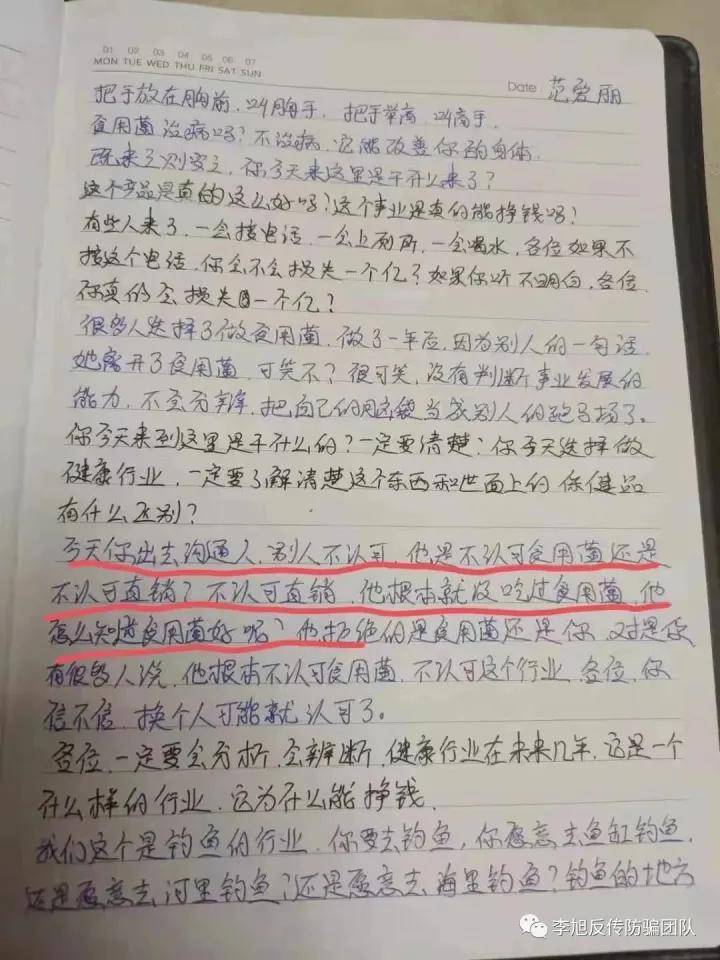 01 02 03 04 05 06 07
MON TUE WED THU FRI SAT SUN
Date: 范爱丽
把手放在胸前,叫胸手,把手举高,叫高手。
食用菌治病吗?不治病,它能改善你的身体.
既来了则安之,你今天来这里是干什么来了?
这个产品是真的这么好吗?这个事业是真的能挣钱吗?
有些人来了,一会接电话,一会上厕所,一会喝水,各位如果不
接这个电话,你会不会损失一个亿?如果你听不明白,各位,
你真的会损失一个亿?
很多人选择了做食用菌,做了一年后,因为别人的一句话,
她离开了食用菌,可笑不?很可笑,没有判断事业发展的
能力,不会分辨,把自己的脑袋当成别人的跑马场了。
你今天来到这里是干什么的?一定要清楚;你今天选择做
健康行业,一定要了解清楚这个东西和世面上的保健品
有什么区别?
今天你出去沟通人,别人不认可,他是不认可食用菌还是
不认可直销?不认可直销,他根本就没吃过食用菌,他
怎么知道食用菌好呢?他拒绝的是食用菌还是你,对是你
有很多人说,他根本不认可食用菌,不认可这个行业,各位,你
信不信,换个人可能就认可了。
各位,一定要会分析,会辨断,健康行业在未来几年,这是一个
什么样的行业,它为什么能挣钱.
我们这个是钓鱼的行业,你要去钓鱼,你愿意去鱼缸钓鱼,
还是愿意去河里钓鱼;还是愿意去海里钓鱼?钓鱼的地方
李旭反传防骗团队